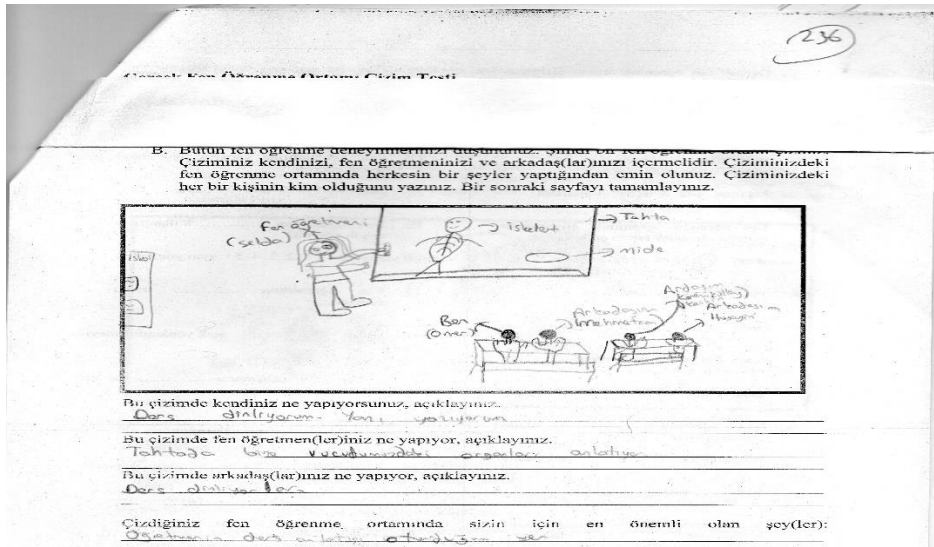 236
Gerçek Fen Öğrenme Ortamı Çizim Testi
B. Bütün fen öğrenme deneyimlerinizi düşününüz. Şimdi bir fen öğrenme ortamı çiziniz.
Çiziminiz kendinizi, fen öğretmeninizi ve arkadaş(lar)ınızı içermelidir. Çiziminizdeki
fen öğrenme ortamında herkesin bir şeyler yaptığından emin olunuz. Çiziminizdeki
her bir kişinin kim olduğunu yazınız. Bir sonraki sayfayı tamamlayınız.
Fen öğretmeni
(selda)
iskelet
Tahta
mide
iskel
Ben
(Ömer)
Arkadaşım
Arkadaşım
Hüseyin
Bu çizimde kendiniz ne yapıyorsunuz, açıklayınız.
Ders dinliyorum. Yani yazıyorum
Bu çizimde fen öğretmen(ler)iniz ne yapıyor, açıklayınız.
Tahtada bize vucudumuzdaki organları anlatıyor
Bu çizimde arkadaş(lar)ınız ne yapıyor, açıklayınız.
Ders dinliyorlar
Çizdiğiniz fen öğrenme ortamında sizin için en önemli olan şey(ler):
Öğretmenin ders anlatışı oturduğum yer